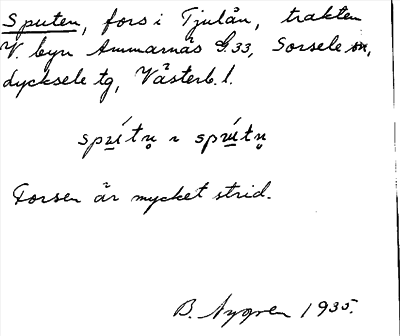 Sputen, fors i Tjulån, trakten
V. byn Ammarnäs G.33, Sorsele sn,
Lycksele tg, Västerb. l.
Forsen är mycket strid.
B. Nygren 1935.